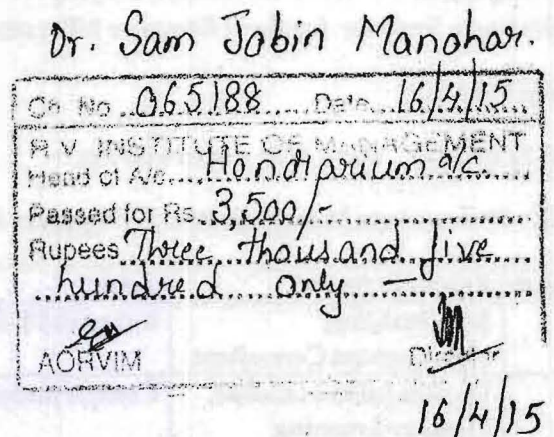 Dr. Sam Jobin Manohar.
Ch. No. 065188 Date 16/4/15
R.V. INSTITUTE OF MANAGEMENT
Head of A/c. Honorarium a/c.
Passed for Rs. 3,500/-
Rupees Three thousand five
hundred only —
AORVIM Director
16/4/15